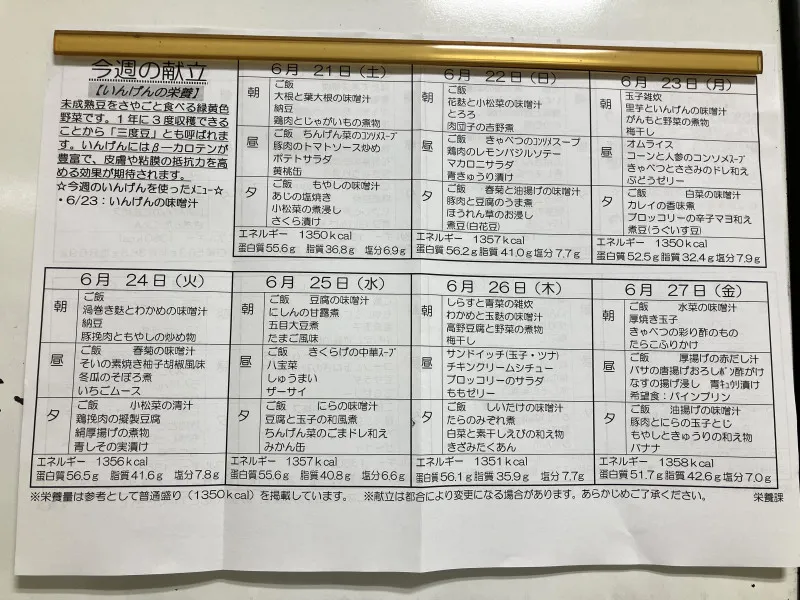 今週の献立
【いんげんの栄養】
未成熟豆をさやごと食べる緑黄色
野菜です。1年に3度収穫できる
ことから「三度豆」とも呼ばれま
す。いんげんにはβ-カロテンが
豊富で、皮膚や粘膜の抵抗力を高
める効果が期待されます。
☆今週のいんげんを使ったﾒﾆｭｰ☆
・6/23：いんげんの味噌汁
6月 21日（土）
朝
ご飯
大根と葉大根の味噌汁
納豆
鶏肉とじゃがいもの煮物
昼
ご飯 ちんげん菜のｺﾝｿﾒｽｰﾌﾟ
豚肉のトマトソース炒め
ポテトサラダ
黄桃缶
夕
ご飯 もやしの味噌汁
あじの塩焼き
小松菜の煮浸し
さくら漬け
エネルギー 1350kcal
蛋白質55.6g 脂質36.8g 塩分6.9g
6月 22日（日）
朝
ご飯
花麩と小松菜の味噌汁
とろろ
肉団子の吉野煮
昼
ご飯 きゃべつのｺﾝｿﾒスープ
鶏肉のレモンバジルソテー
マカロニサラダ
青きゅうり漬け
夕
ご飯 春菊と油揚げの味噌汁
豚肉と豆腐のうま煮
ほうれん草のお浸し
煮豆（白花豆）
エネルギー 1357kcal
蛋白質56.2g 脂質41.0g 塩分7.7g
6月 23日（月）
朝
玉子雑炊
里芋といんげんの味噌汁
がんもと野菜の煮物
梅干し
昼
オムライス
コーンと人参のコンソメｽｰﾌﾟ
きゃべつとささみのドレ和え
ぶどうゼリー
夕
ご飯 白菜の味噌汁
カレイの香味煮
ブロッコリーの辛子マヨ和え
煮豆（うぐいす豆）
エネルギー 1350kcal
蛋白質52.5g 脂質32.4g 塩分7.9g
6月 24日（火）
朝
ご飯
渦巻き麩とわかめの味噌汁
納豆
豚挽肉ともやしの炒め物
昼
ご飯 春菊の味噌汁
そいの素焼き柚子胡椒風味
冬瓜のそぼろ煮
いちごムース
夕
ご飯 小松菜の清汁
鶏挽肉の擬製豆腐
絹厚揚げの煮物
青しその実漬け
エネルギー 1356kcal
蛋白質56.5g 脂質41.6g 塩分7.8g
6月 25日（水）
朝
ご飯 豆腐の味噌汁
にしんの甘露煮
五目大豆煮
たまご風味
昼
ご飯 きくらげの中華ｽｰﾌﾟ
八宝菜
しゅうまい
ザーサイ
夕
ご飯 にらの味噌汁
豆腐と玉子の和風煮
ちんげん菜のごまドレ和え
みかん缶
エネルギー 1357kcal
蛋白質55.6g 脂質40.8g 塩分6.6g
6月 26日（木）
朝
しらすと青菜の雑炊
わかめと玉麩の味噌汁
高野豆腐と野菜の煮物
梅干し
昼
サンドイッチ（玉子・ツナ）
チキンクリームシチュー
ブロッコリーのサラダ
ももゼリー
夕
ご飯 しいたけの味噌汁
たらのみぞれ煮
白菜と素干しえびの和え物
きざみたくあん
エネルギー 1351kcal
蛋白質56.1g 脂質35.9g 塩分7.7g
6月 27日（金）
朝
ご飯 水菜の味噌汁
厚焼き玉子
きゃべつの彩り酢のもの
たらこふりかけ
昼
ご飯 厚揚げの赤だし汁
バサの唐揚げおろしﾎﾟﾝ酢がけ
なすの揚げ浸し 青ｷｭｳﾘ漬け
希望食：パインプリン
夕
ご飯 油揚げの味噌汁
豚肉とにらの玉子とじ
もやしときゅうりの和え物
バナナ
エネルギー 1358kcal
蛋白質51.7g 脂質42.6g 塩分7.0g
※栄養量は参考として普通盛り（1350kcal）を掲載しています。 ※献立は都合により変更になる場合があります。あらかじめご了承ください。 栄養課